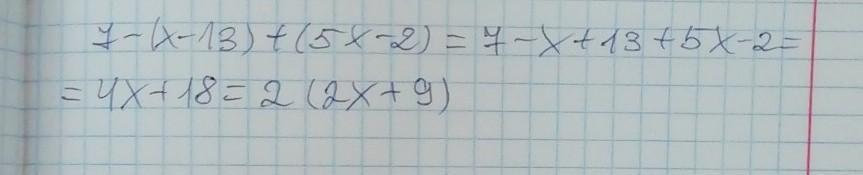 7-(x-13)+(5x-2)=7-x+13+5x-2=
=4x+18=2(2x+9)